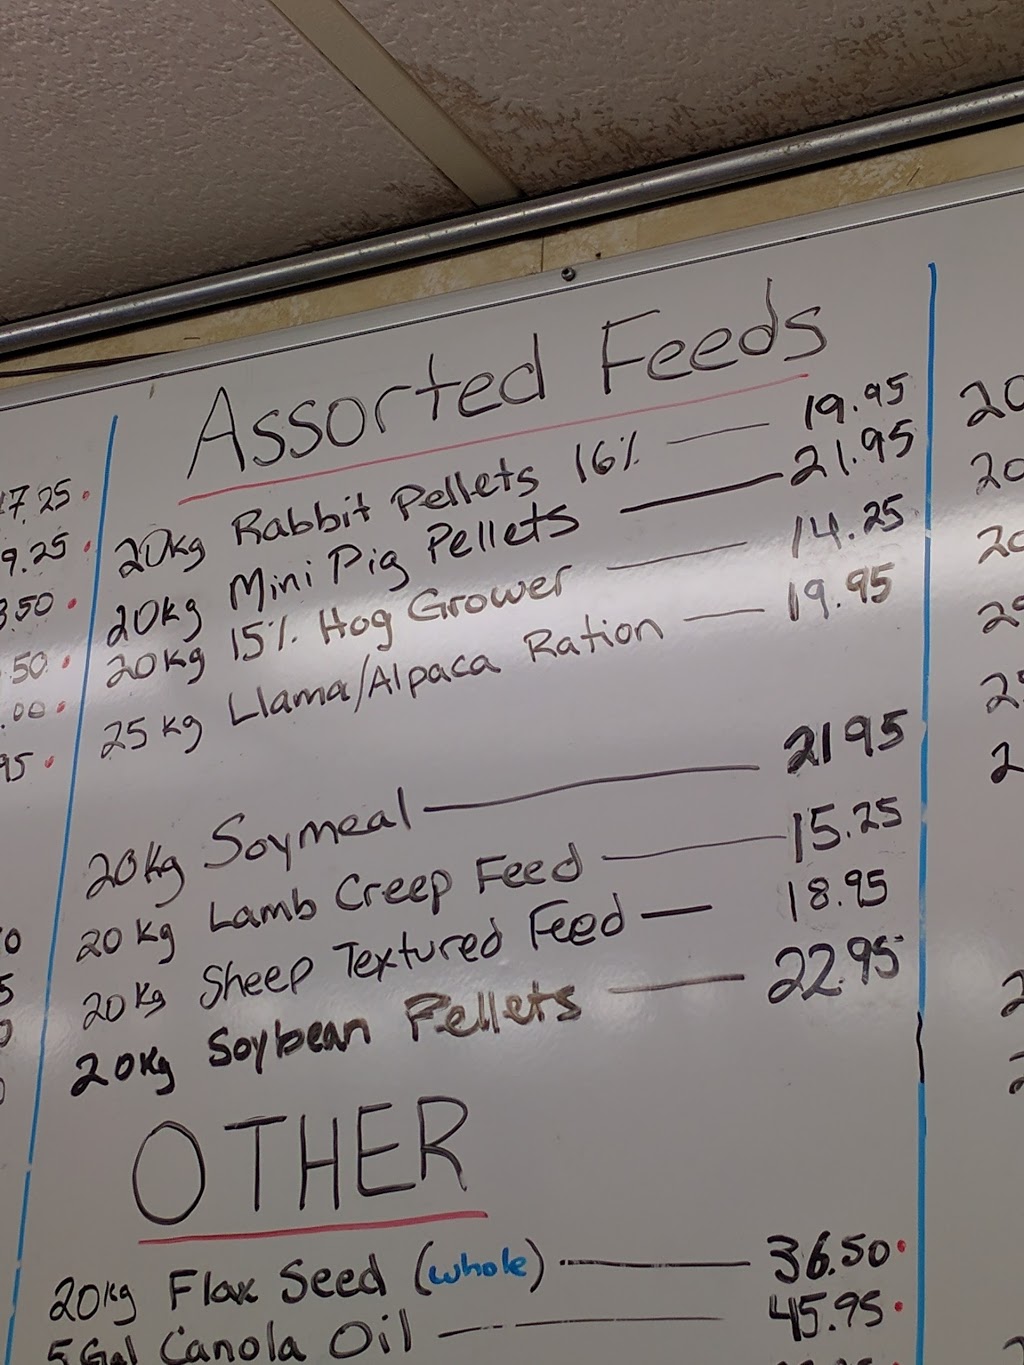 Assorted Feeds
20kg Rabbit Pellets 16% — 19.95
20kg Mini Pig Pellets — 21.95
20kg 15% Hog Grower — 14.25
25kg Llama/Alpaca Ration — 19.95
20kg Soymeal — 21 95
20kg Lamb Creep Feed — 15.25
20kg Sheep Textured Feed — 18.95
20kg Soybean Pellets — 22.95
OTHER
20kg Flax Seed (whole) — 36.50
5 Gal Canola Oil — 45.95
17.25
9.25
3.50
.50
.00
95